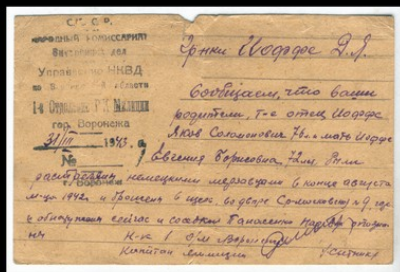 С.С.С.Р.
НАРОДНЫЙ КОМИССАРИАТ
Внутренних дел
Управление НКВД
по области
1-е Отделение Р.К. Милиции
гор. Воронежа
31/III 1943 г.
№
г. Воронеж
Гр-нки Иоффе Д.Я.
Сообщаем, что ваши
родители, т-е отец Иоффе
Яков Соломонович 76 и мать Иоффе
Евгения Борисовна 72 л. были
немецкими мерзавцами в конце августа
м-ца 1942 г. и брошены в щек. во дворе №9, где
и обнаружены сейчас и соседкой
Н-к 1 о/м
Капитан милиции